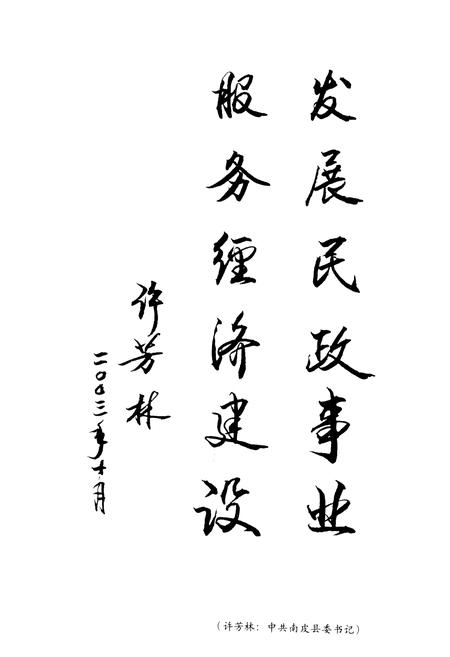 发展民政事业
服务经济建设
许芳林
二〇〇三年十月
（许芳林：中共南皮县委书记）